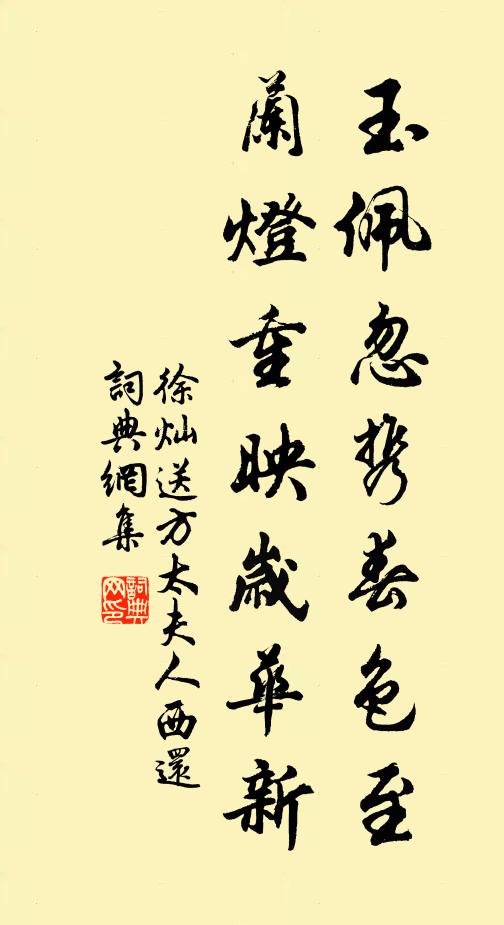 玉佩忽携春色至
蘭燈重映歲華新
徐灿送方太夫人西還
詞典網集
詞典網印